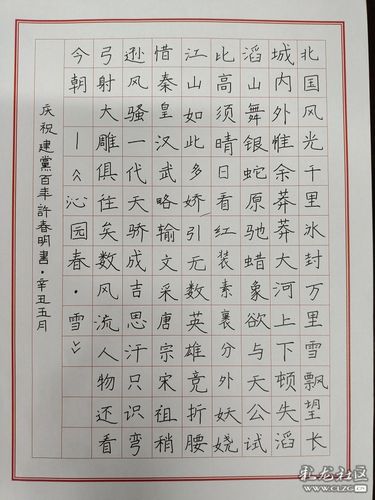 北国风光千里冰封万里雪飘望长
城内外惟余莽莽大河上下顿失滔
滔山舞银蛇原驰蜡象欲与天公试
比高须晴日看红装素裹分外妖娆
江山如此多娇引无数英雄竞折腰
惜秦皇汉武略输文采唐宗宋祖稍
逊风骚一代天骄成吉思汗只识弯
弓射大雕俱往矣数风流人物还看
今朝—《沁园春·雪》
庆祝建黨百年許春明書·辛丑五月
龙社区